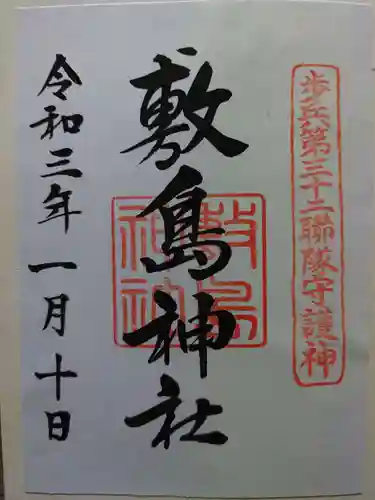 歩兵第三十二聯隊守護神
敷島神社
敷島神社
令和三年一月十日